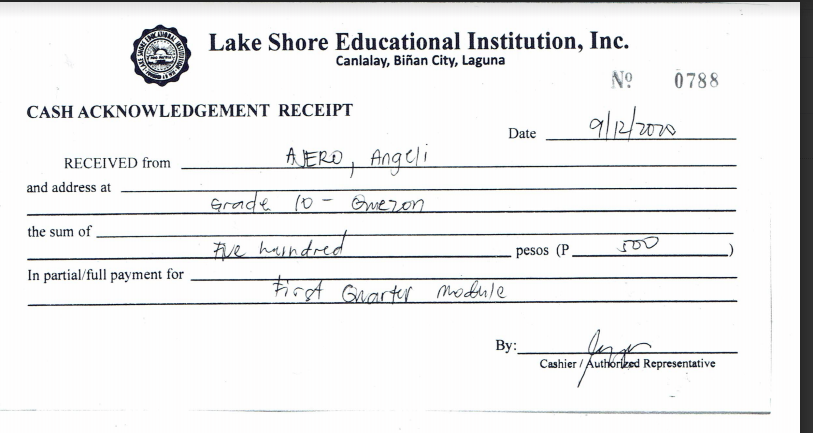 Lake Shore Educational Institution, Inc.
Canlalay, Biñan City, Laguna
Nº 0788
CASH ACKNOWLEDGEMENT RECEIPT
Date 9/12/2020
RECEIVED from AJERO, Angeli
and address at
Grade 10 - Quezon
the sum of
Five hundred pesos (P 500 )
In partial/full payment for
First Quarter Module
By:
Cashier / Authorized Representative